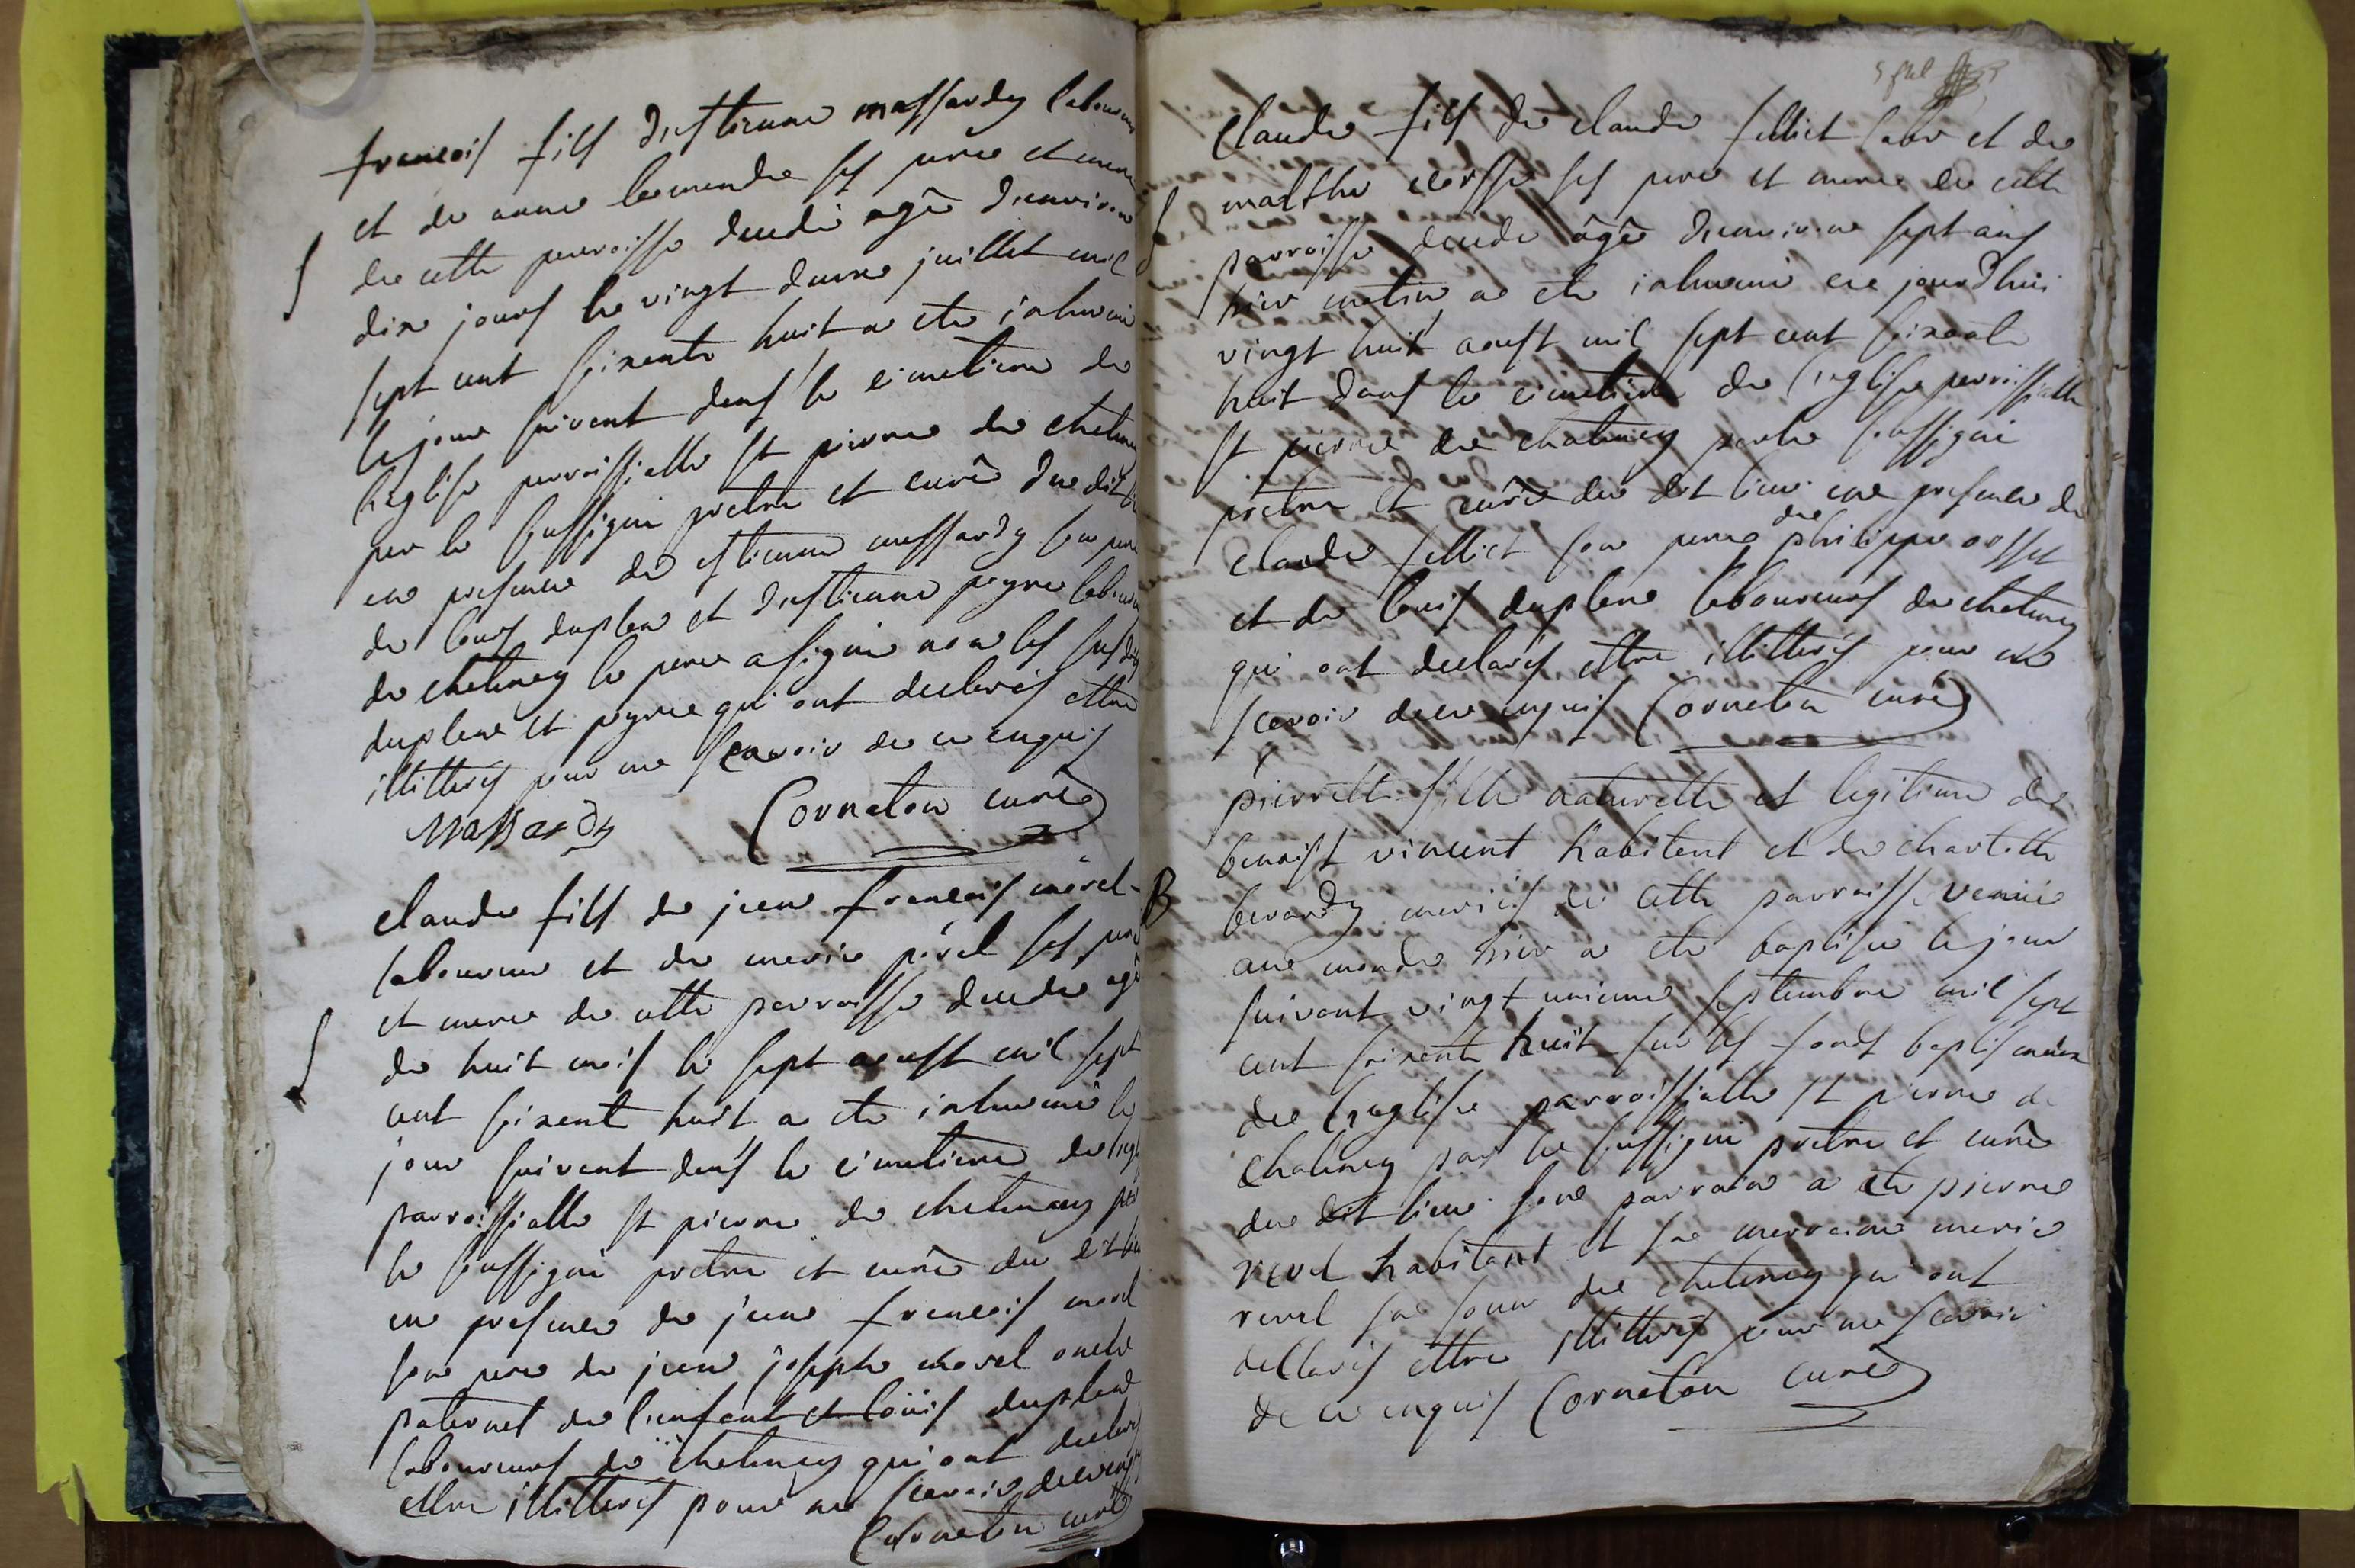 francois fils d'estienne massardy laboureur
et de anne lemendre ses pere et mere
de cette parroisse decedé agé d'environ
dix jours le vingt deuxe juillet mil
sept cent soixente huit a ete inhumé
le jour suivent dens le cimetiere de
l'eglise parroissialle st pierre de
par le soussigné pretre et curé du dit
en presence de estienne massardy son pere
de louis duplene et d'estienne peyre
de le pere a signé non les susdits
duplene et peyre qui ont declerés ettre
illitterés pour ne scavoir de ce enquis
Massardy Corneton curé
claude fils de jean francois morel
laboureur et de merie ses pere
et mere de cette parroisse decedé agé
de huit mois le sept aoust mil sept
cent soixente huit a ete inhumé le
jour suivent dens le cimetiere de
parroissialle st pierre de
le soussigné pretre et curé du dit lieu
en presence de jean francois morel
son pere de jean joseph morel oncle
paternel de l'enfent et loüis duplene
laboureurs de qui ont declerés
ettre illitterés pour ne scavoir de ce enquis
Corneton curé
claude fils de claude labr et de
ses pere et mere de cette
parroisse decedé âgé d'environ sept ans
hier matin a ete inhumé ce jourd'hui
vingt huit aoust mil sept cent soixente
huit dans le cimetiere de l'eglise parroissialle
st pierre de par le soussigné
prêtre et curé du dit lieu en presence de
claude son pere de philippe
et de louis duplene laboureurs de
qui ont declarés ettre illitterés pour ne
scavoir de ce enquis Corneton curé
B pierrette fille naturelle et legitime de
benoist vincent habitent et de
berardy meriés de cette parroisse venüe
au monde hier a ete baptisée le jour
suivent vingt unieme septembre mil sept
cent soixente huit sur les fonds baptismeaux
de l'eglise parroissialle st pierre de
par le soussigné pretre et curé
du dit lieu son parrain a ete pierre
revel habitant et sa merreine merie
revel sa soeur de qui ont
declarés ettre illitterés pour ne scavoir
de ce enquis Corneton curé